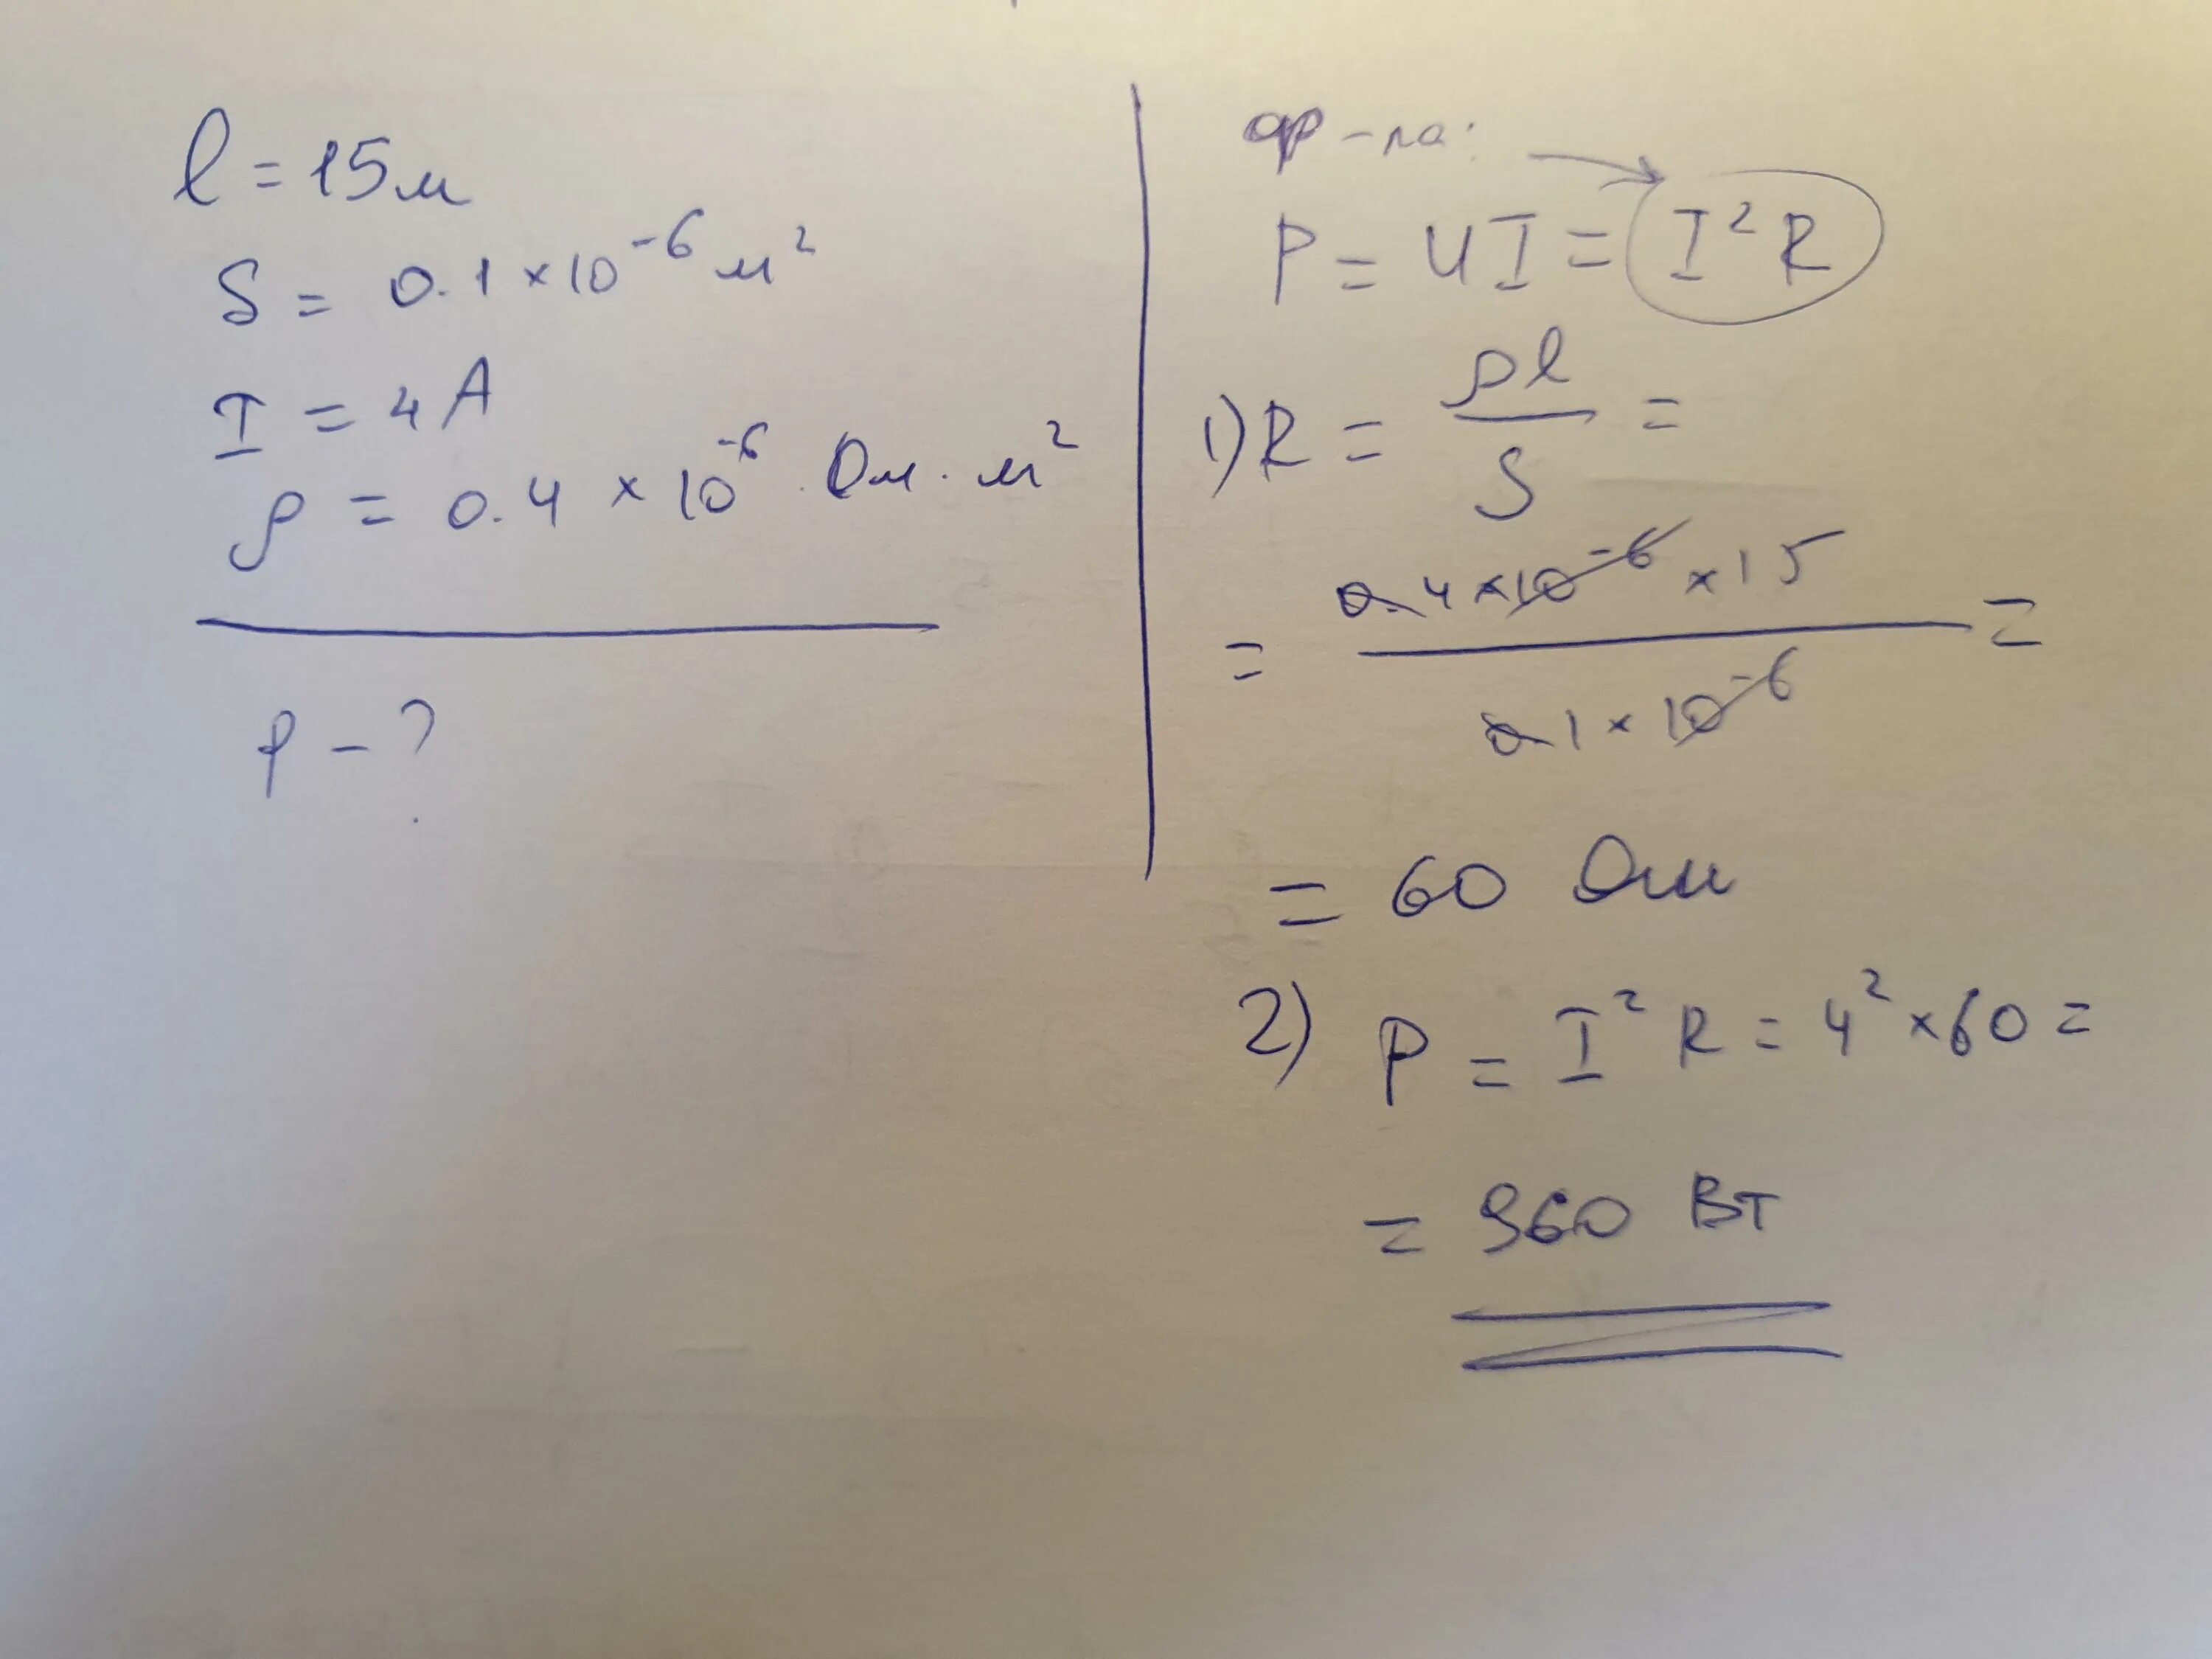 l = 15 м
S = 0.1 × 10⁻⁶ м²
I = 4 А
ρ = 0.4 × 10⁻⁶ Ом · м²
P – ?
ф-ла:
P = UI = I²R
1) R = ρl / S =
= 0.4 × 10⁻⁶ × 15 / 0.1 × 10⁻⁶ =
= 60 Ом
2) P = I²R = 4² × 60 =
= 960 Вт